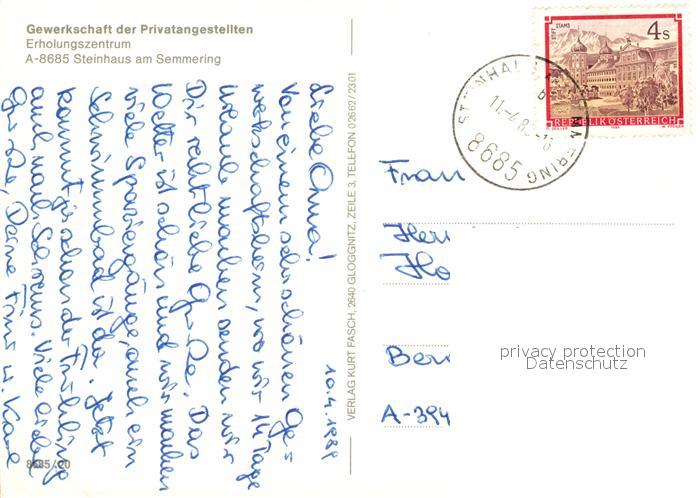 Gewerkschaft der Privatangestellten
Erholungszentrum
A-8685 Steinhaus am Semmering
10.4.1989
Liebe Oma!
Von einem sehr schönen Ge=
werkschaftsheim, wo wir 14 Tage
Urlaub machen senden wir
Dir recht liebe Grüße. Das
Wetter ist schön und wir machen
viele Spaziergänge, auch ein
Schwimmbad ist da. Jetzt
kommt ja schon der Frühling
auch nach Schrems. Viele liebe
Grüße, Deine u.
8685/20
VERLAG KURT FASCH, 2640 GLOGGNITZ, ZEILE 3, TELEFON 02662/2301
STIFT STAMS
4 S
REPUBLIK ÖSTERREICH
STEINHAUS AM SEMMERING
8685
Frau
Her
Ho
Ber
A-394
privacy protection
Datenschutz